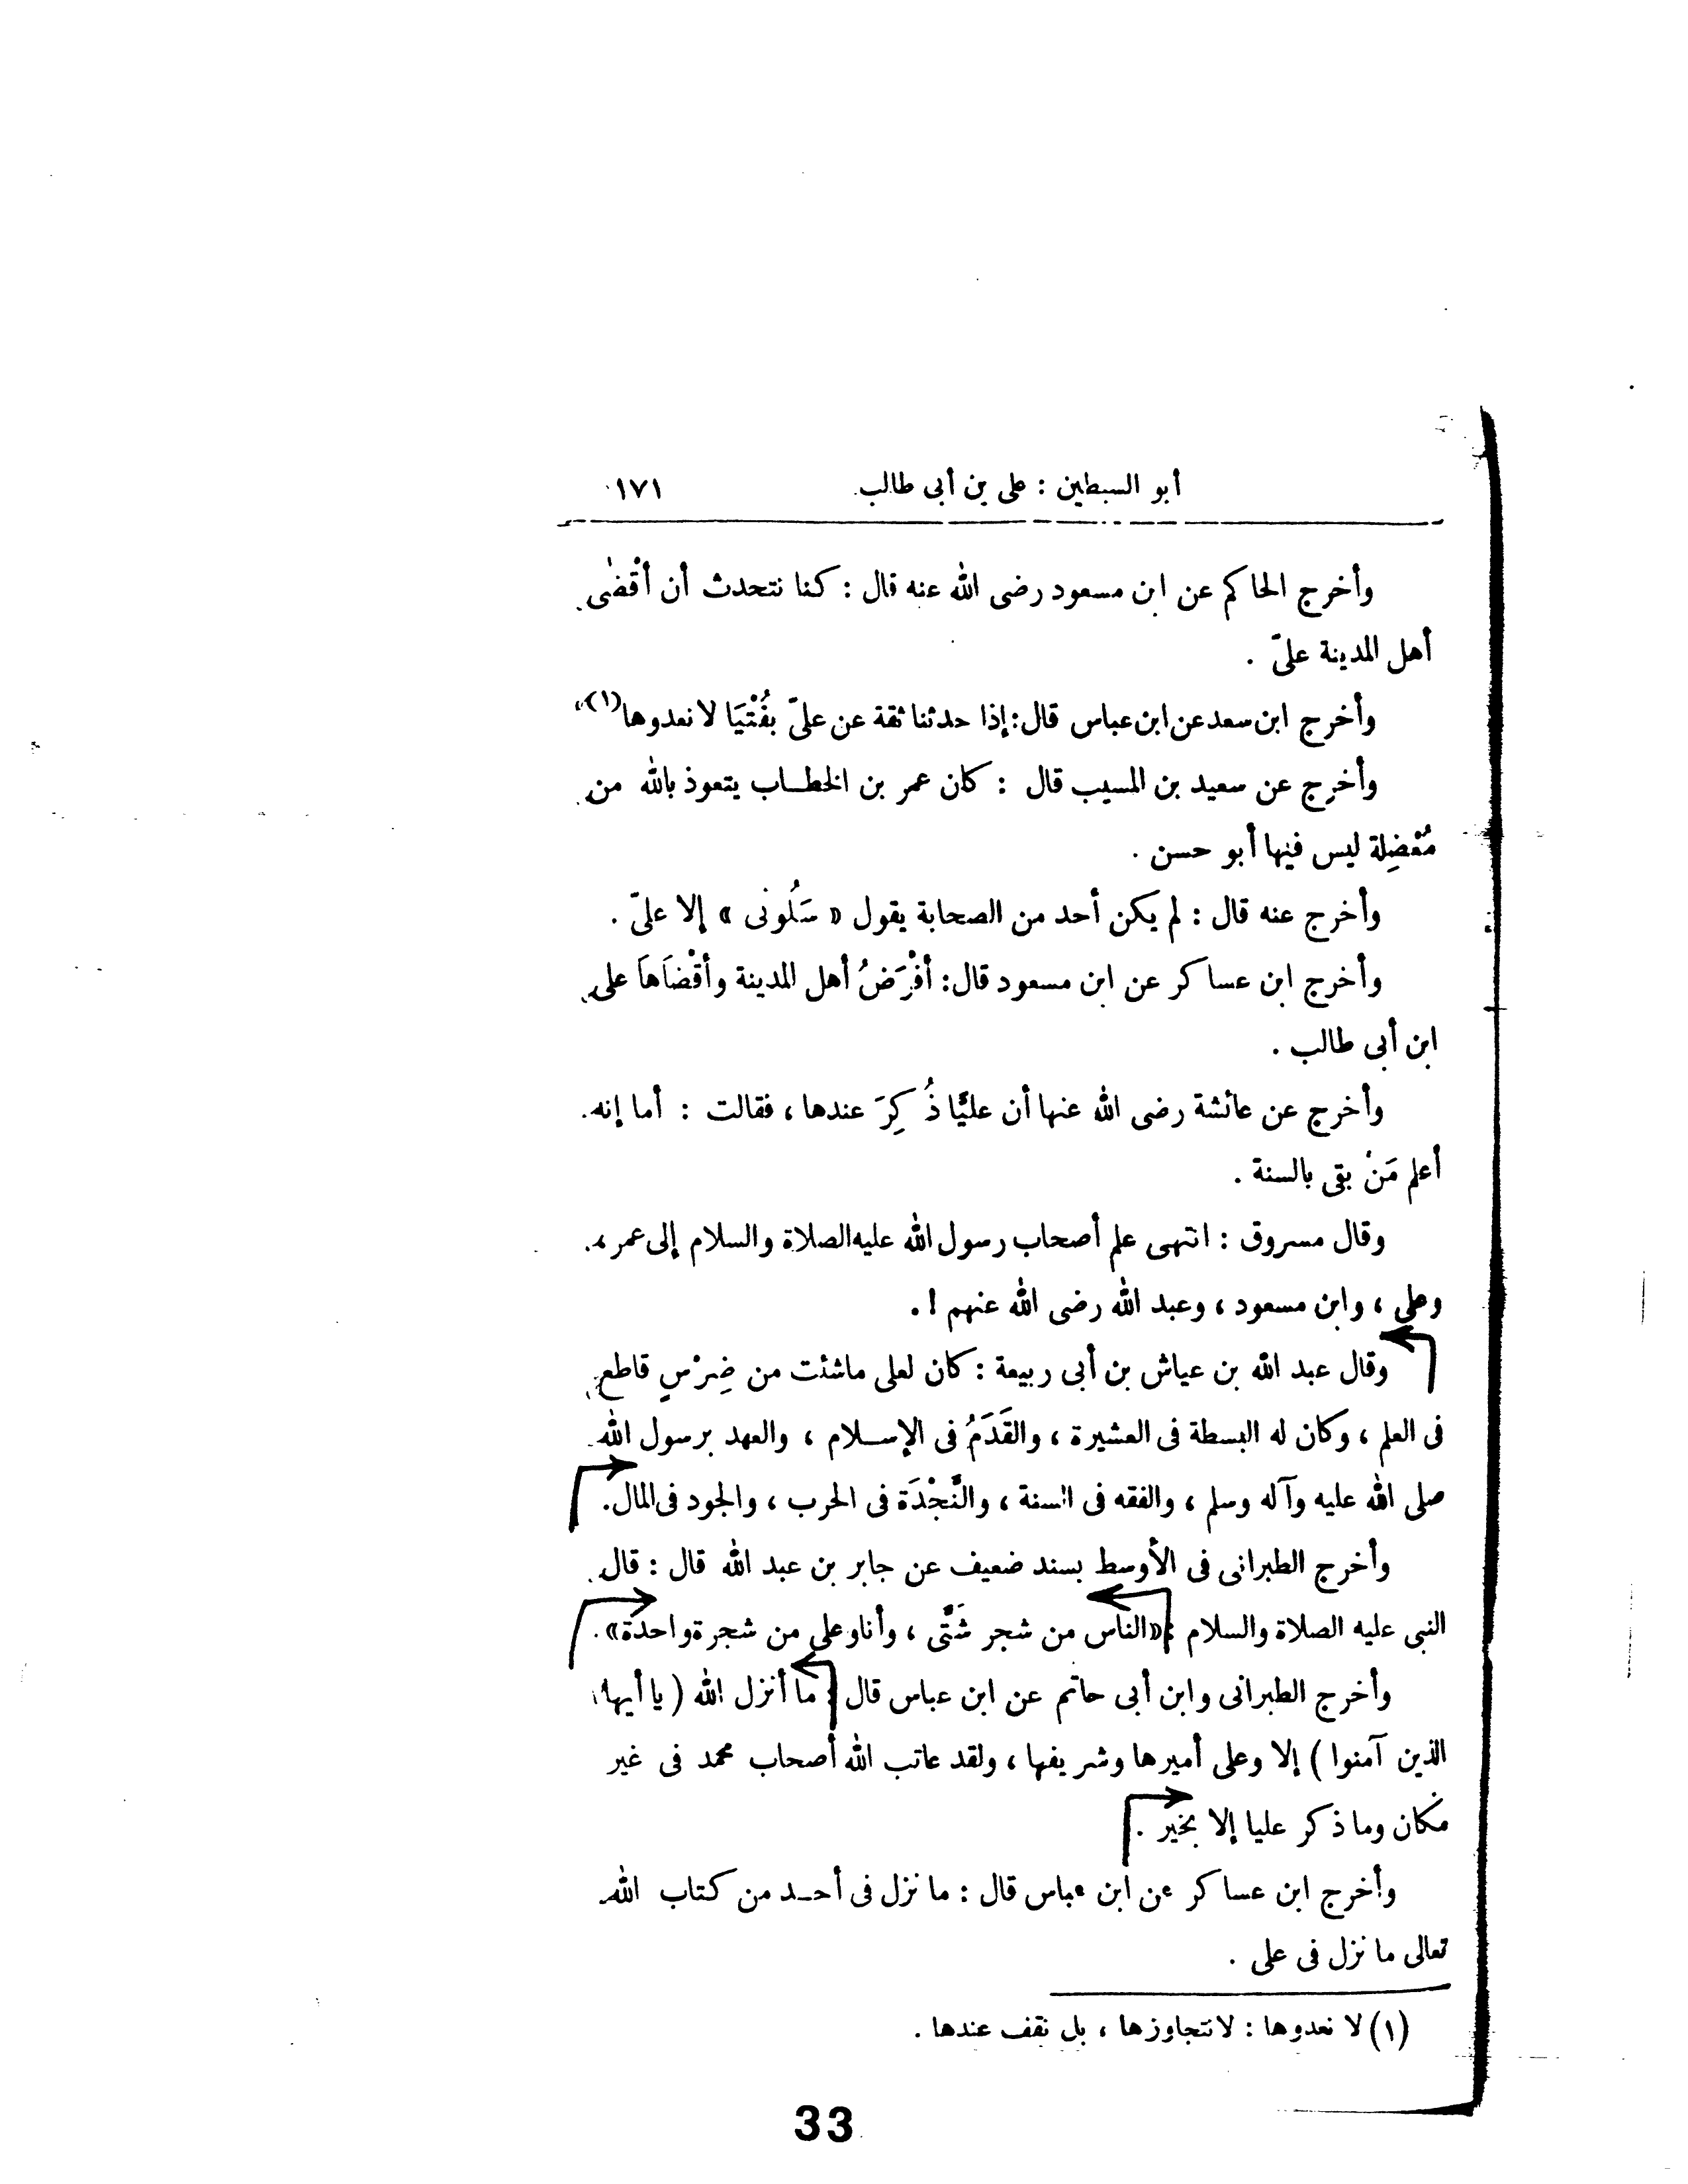 أبو السبطين : على بن أبى طالب ١٧١
وأخرج الحاكم عن ابن مسعود رضى الله عنه قال : كنا نتحدث أن أقْضٰى
أهل المدينة علىّ .
وأخرج ابن سعد عن ابن عباس قال : إذا حدثنا ثقة عن علىّ بفُتْيَا لا نعدوها (١)
وأخرج عن سعيد بن المسيب قال : كان عمر بن الخطاب يتعوذ بالله من
مُعْضِلة ليس فيها أبو حسن .
وأخرج عنه قال : لم يكن أحد من الصحابة يقول « سَلُونى » إلا علىّ .
وأخرج ابن عساكر عن ابن مسعود قال : أفْرَضُ أهل المدينة وأقْضَاهَا على
ابن أبى طالب .
وأخرج عن عائشة رضى الله عنها أن عليًّا ذُكِرَ عندها ، فقالت : أما إنه
أعلم مَنْ بقى بالسنة .
وقال مسروق : انتهى علم أصحاب رسول الله عليه الصلاة والسلام إلى عمر ،
وعلى ، وابن مسعود ، وعبد الله رضى الله عنهم ! .
وقال عبد الله بن عياش بن أبى ربيعة : كان لعلى ماشئت من ضِرْسٍ قاطع
فى العلم ، وكان له البسطة فى العشيرة ، والقَدَمُ فى الإسلام ، والعهد برسول الله
صلى الله عليه وآله وسلم ، والفقه فى السنة ، والنَّجْدَة فى الحرب ، والجود فى المال .
وأخرج الطبرانى فى الأوسط بسند ضعيف عن جابر بن عبد الله قال : قال
النبى عليه الصلاة والسلام : «الناس من شجر شَتَّى ، وأنا وعلى من شجرة واحدة» .
وأخرج الطبرانى وابن أبى حاتم عن ابن عباس قال : ما أنزل الله ( يا أيها
الذين آمنوا ) إلا وعلى أميرها وشريفها ، ولقد عاتب الله أصحاب محمد فى غير
مكان وما ذكر عليا إلا بخير .
وأخرج ابن عساكر عن ابن عباس قال : ما نزل فى أحد من كتاب الله
تعالى ما نزل فى على .
(١) لا نعدوها : لا نتجاوزها ، بل نقف عندها .
33